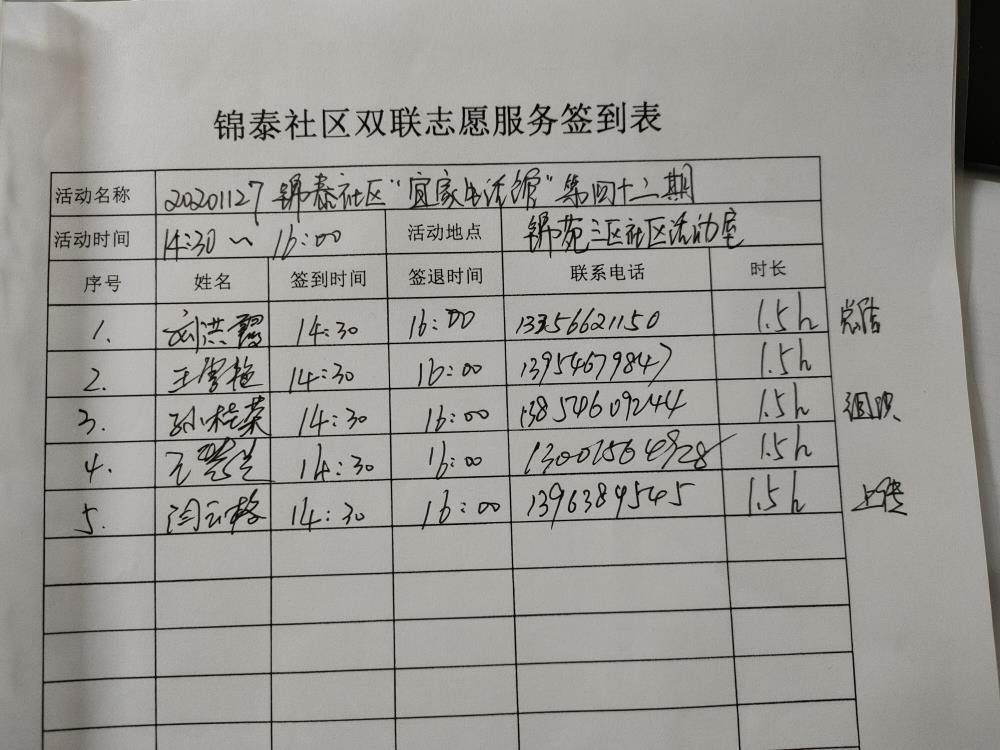 锦泰社区双联志愿服务签到表
活动名称 20201127 锦泰社区“宜家生活馆”第四十二期
活动时间 14:30~16:00 活动地点 锦苑三区社区活动室
序号 姓名 签到时间 签退时间 联系电话 时长
1. 刘洪霞 14:30 16:00 13356621150 1.5h 总结
2. 王雪艳 14:30 16:00 13954679847 1.5h
3. 孙桂荣 14:30 16:00 13854609244 1.5h 组织
4. 14:30 16:00 13001564928 1.5h
5. 闫玉格 14:30 16:00 1396389545 1.5h 上传